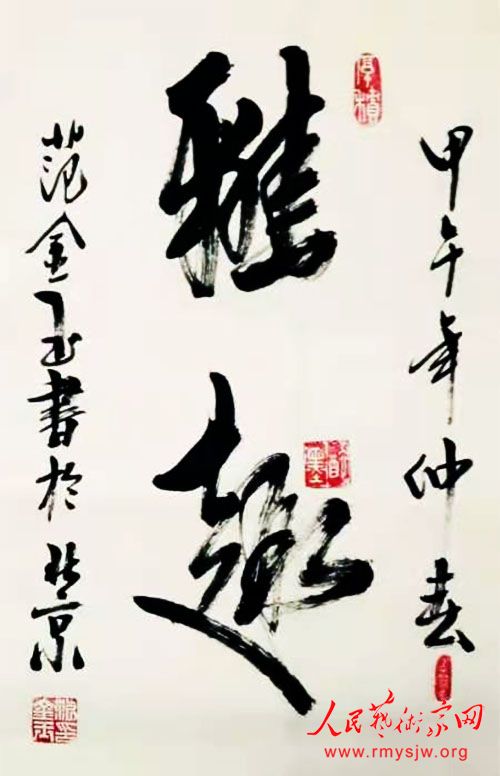 甲午年仲春
雅趣
范金玉書於北京
人民藝術家网
www.rmysjw.org